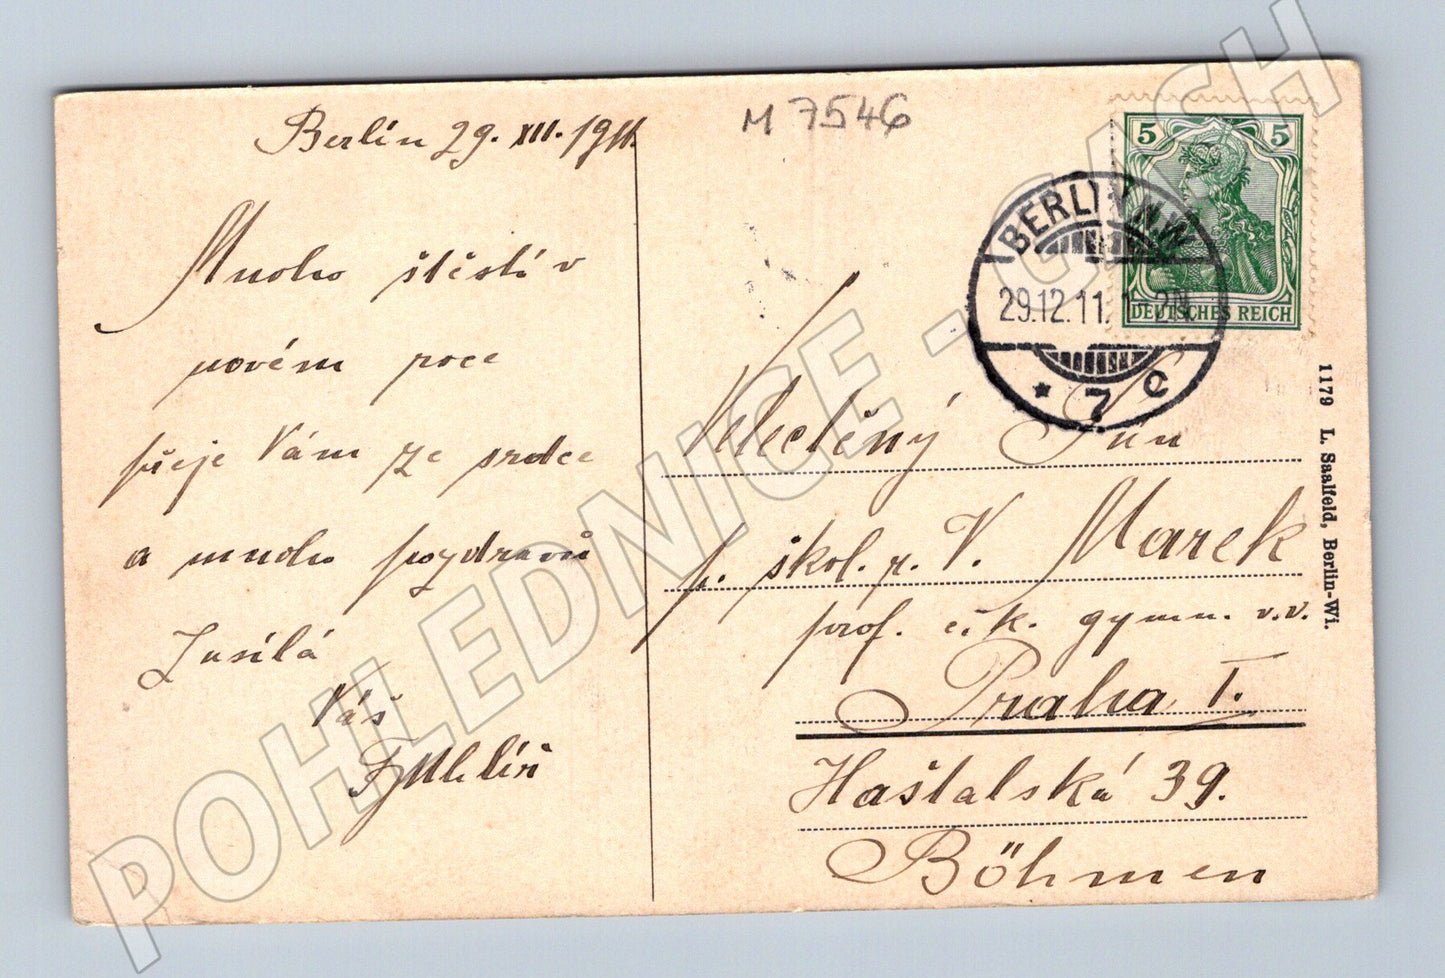 Berlín 29. XII. 1911.
Mnoho štěstí v
novém roce
přeje Vám ze srdce
a mnoho pozdravů
zasílá
Váš
M 7546
5 5
DEUTSCHES REICH
BERLIN N.W.
29.12.11. 1-2N.
* 7 c
Velectěný Pán
p. škol. r. V. Marek
prof. c. k. gymn. v. v.
Praha I.
Haštalská 39.
Böhmen
1179 L. Saalfeld, Berlin-Wi.
POHLEDNICE - GACH